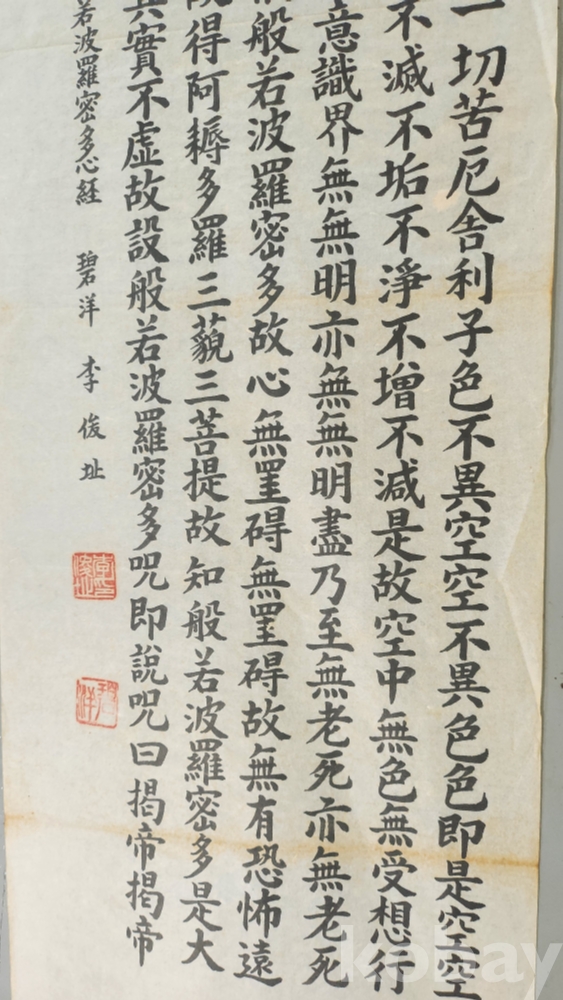 一切苦厄舍利子色不異空空不異色色即是空空
不滅不垢不淨不增不減是故空中無色無受想行
意識界無無明亦無無明盡乃至無老死亦無老死
般若波羅密多故心無罣碍無罣碍故無有恐怖遠
得阿耨多羅三藐三菩提故知般若波羅密多是大
真實不虛故設般若波羅密多呪即說呪曰揭帝揭帝
若波羅密多心経 碧洋 李俊址
碧洋
kobay